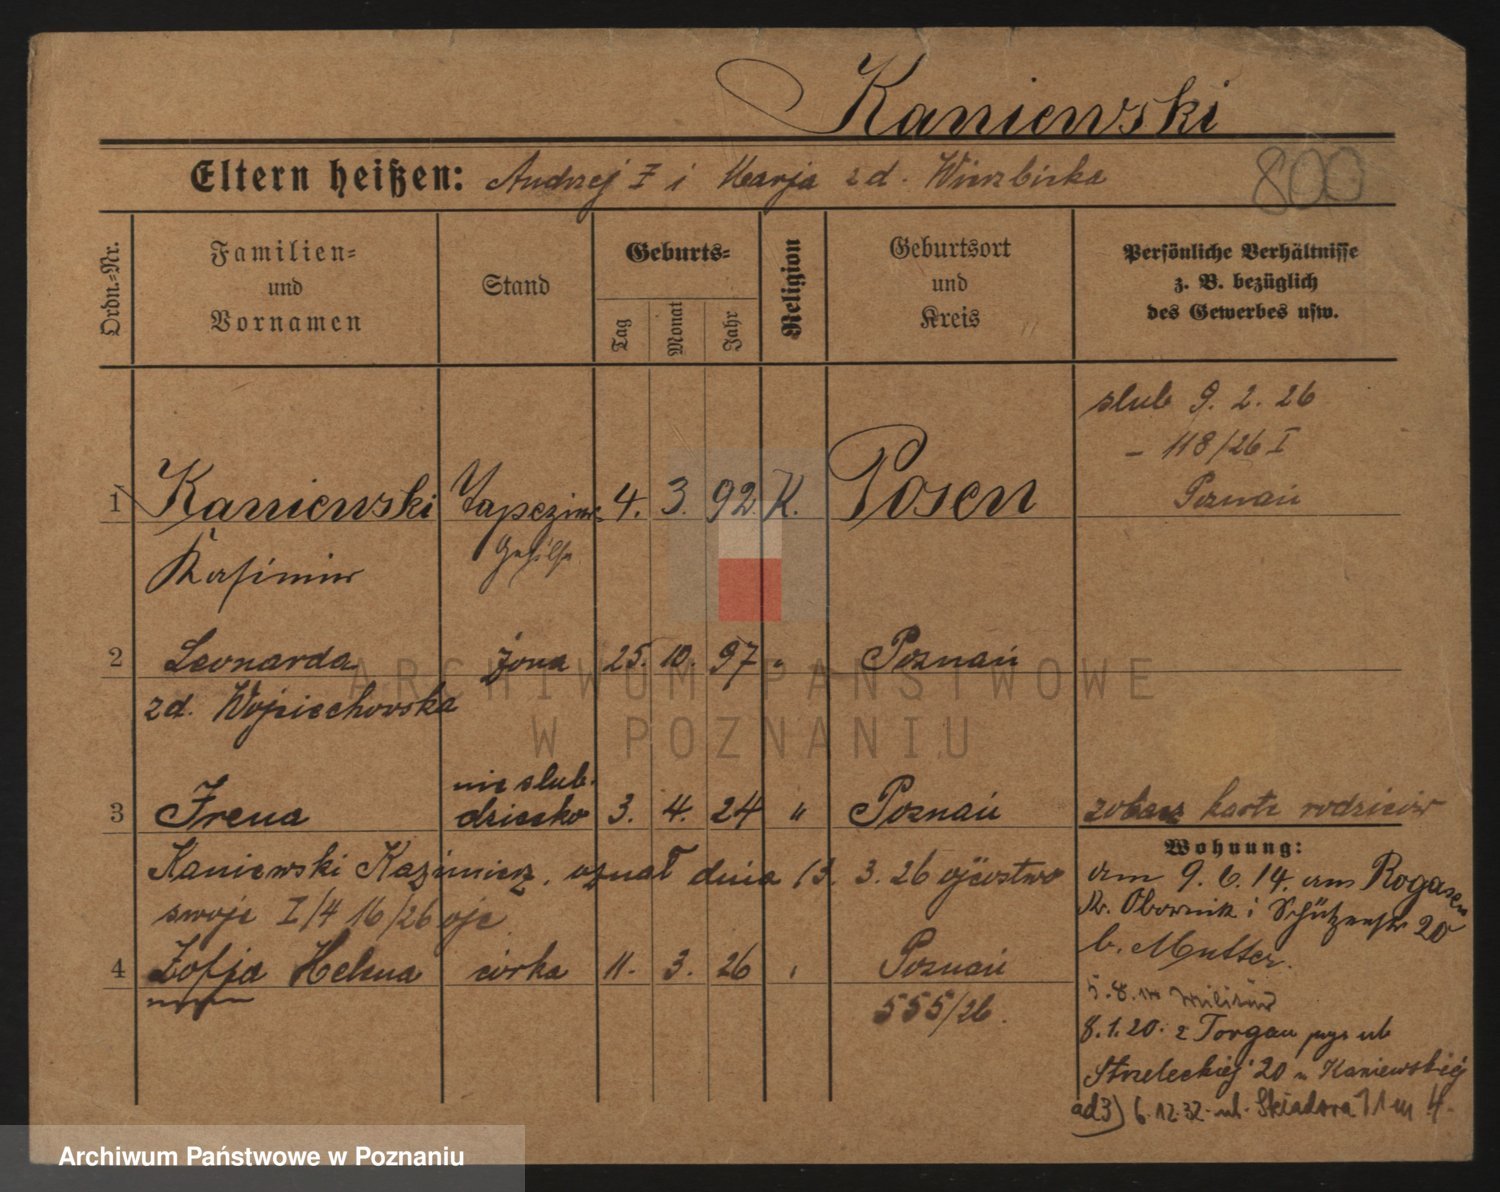 Kaniewski
Eltern heißen: Andrzej † i Marja zd. Wierzbicka
800
Ordn.-Nr.
Familien- und Vornamen
Stand
Geburts-
Tag
Monat
Jahr
Religion
Geburtsort und Kreis
Persönliche Verhältnisse
z. B. bezüglich
des Gewerbes usw.
ślub 9. 2. 26
– 118/26 I
Poznań
1 Kaniewski Tapezier 4. 3. 92. K. Posen
Kasimir Gehilfe
2 Leonarda żona 25. 10. 97 " Poznań
zd. Wojciechowska
nieślub.
3 Irena dziecko 3. 4. 24 " Poznań zobacz kartę rodziców
Kaniewski Kazimierz, uznał dnia 13. 3. 26 ojcostwo
swoje I/4 16/26 oje
4 Zofja Helena córka 11. 3. 26 " Poznań
555/26.
Wohnung:
am 9. 6. 14. aus Rogasen
Kr. Obornik i Schützenstr 20
b. Mutter.
5. 8. Militär
8. 1. 20. z Torgau ul
Strzeleckiej 20 u Kaniewskiej
ad3) 6.12.32 ul. Składowa 11 m 4.
ARCHIWUM PAŃSTWOWE
W POZNANIU
Archiwum Państwowe w Poznaniu